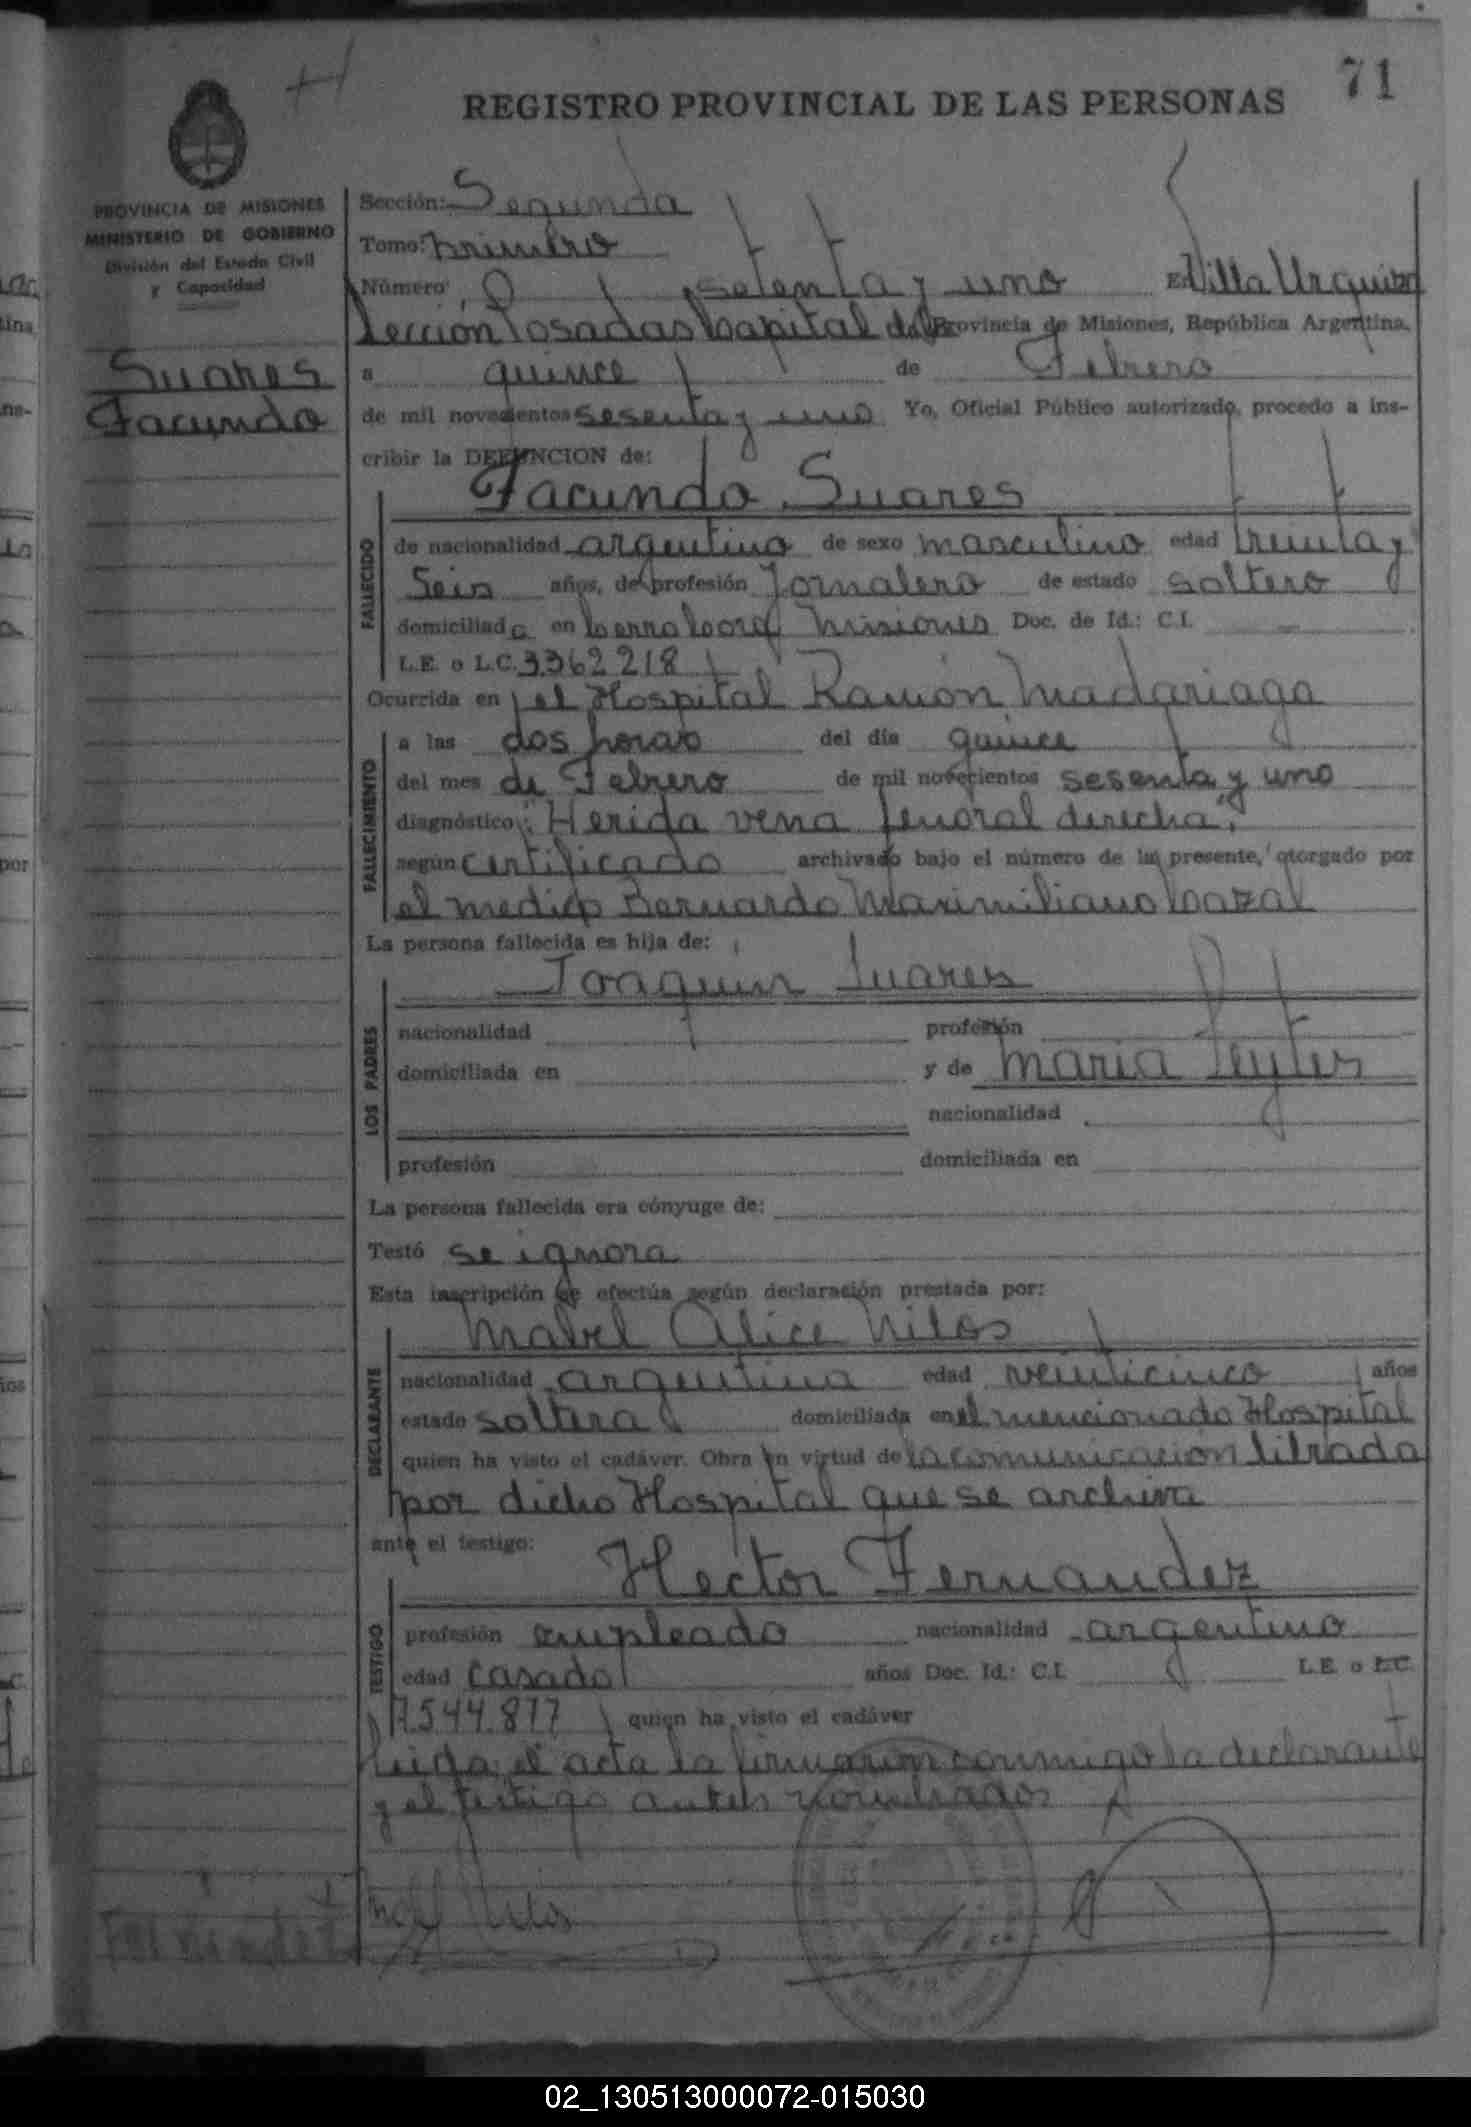 71
REGISTRO PROVINCIAL DE LAS PERSONAS
PROVINCIA DE MISIONES
MINISTERIO DE GOBIERNO
División del Estado Civil
y Capacidad
Suares
Facundo
Sección: Segunda
Tomo: primero
Número setenta y uno En Villa Urquiza
Sección Posadas Capital de la Provincia de Misiones, República Argentina,
a quince de Febrero
de mil novecientos sesenta y uno Yo, Oficial Público autorizado, procedo a ins-
cribir la DEFUNCION de:
Facundo Suares
FALLECIDO
de nacionalidad argentino de sexo masculino edad treinta y
Seis años, de profesión Jornalero de estado soltero
domiciliado en Cerro Corá Misiones Doc. de Id.: C.I.
L.E. o L.C. 3.362.218
Ocurrida en el Hospital Ramón Madariaga
FALLECIMIENTO
a las dos horas del día quince
del mes de Febrero de mil novecientos sesenta y uno
diagnóstico: "Herida vena femoral derecha",
según certificado archivado bajo el número de la presente, otorgado por
el medico Bernardo Maximiliano Cazal
La persona fallecida es hija de:
Joaquin Suares
LOS PADRES
nacionalidad profesión
domiciliada en y de Maria
nacionalidad
profesión domiciliada en
La persona fallecida era cónyuge de:
Testó se ignora
Esta inscripción se efectúa según declaración prestada por:
Mabel Alice
DECLARANTE
nacionalidad argentina edad veinticinco años
estado soltera domiciliada en el mencionado Hospital
quien ha visto el cadáver. Obra en virtud de la comunicación librada
por dicho Hospital que se archiva
ante el testigo:
Hector Fernandez
TESTIGO
profesión empleado nacionalidad argentino
edad casado años Doc. Id.: C.I. L.E. o L.C.
7.544.877 quien ha visto el cadáver
Leida el acta la firmaron conmigo la declarante
y el testigo antes nombrados
Fernandez
02_130513000072-015030